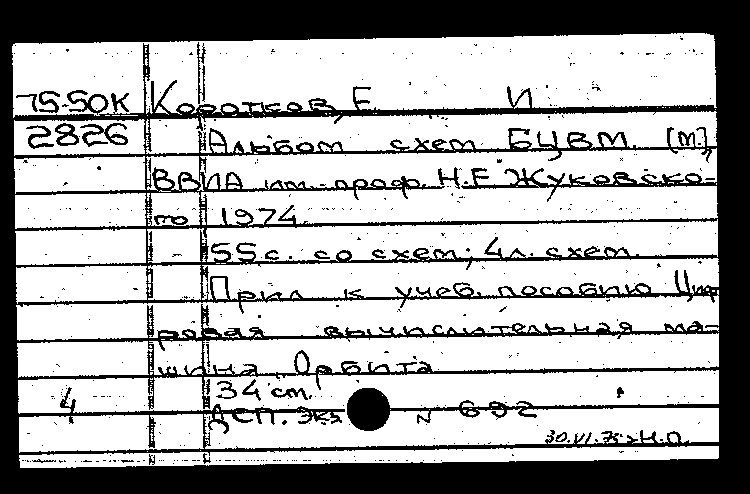 75-50К Коротков, Е И
2826 Альбом схем БЦВМ. [М.],
ВВИА им. проф. Н.Е Жуковско-
го 1974
55с. со схем; 4л. схем.
Прил к учеб. пособию Циф-
ровая вычислительная ма-
шина Орбита
34 см.
4 ДСП. Экз N 692
30.VI.75 Н.П.